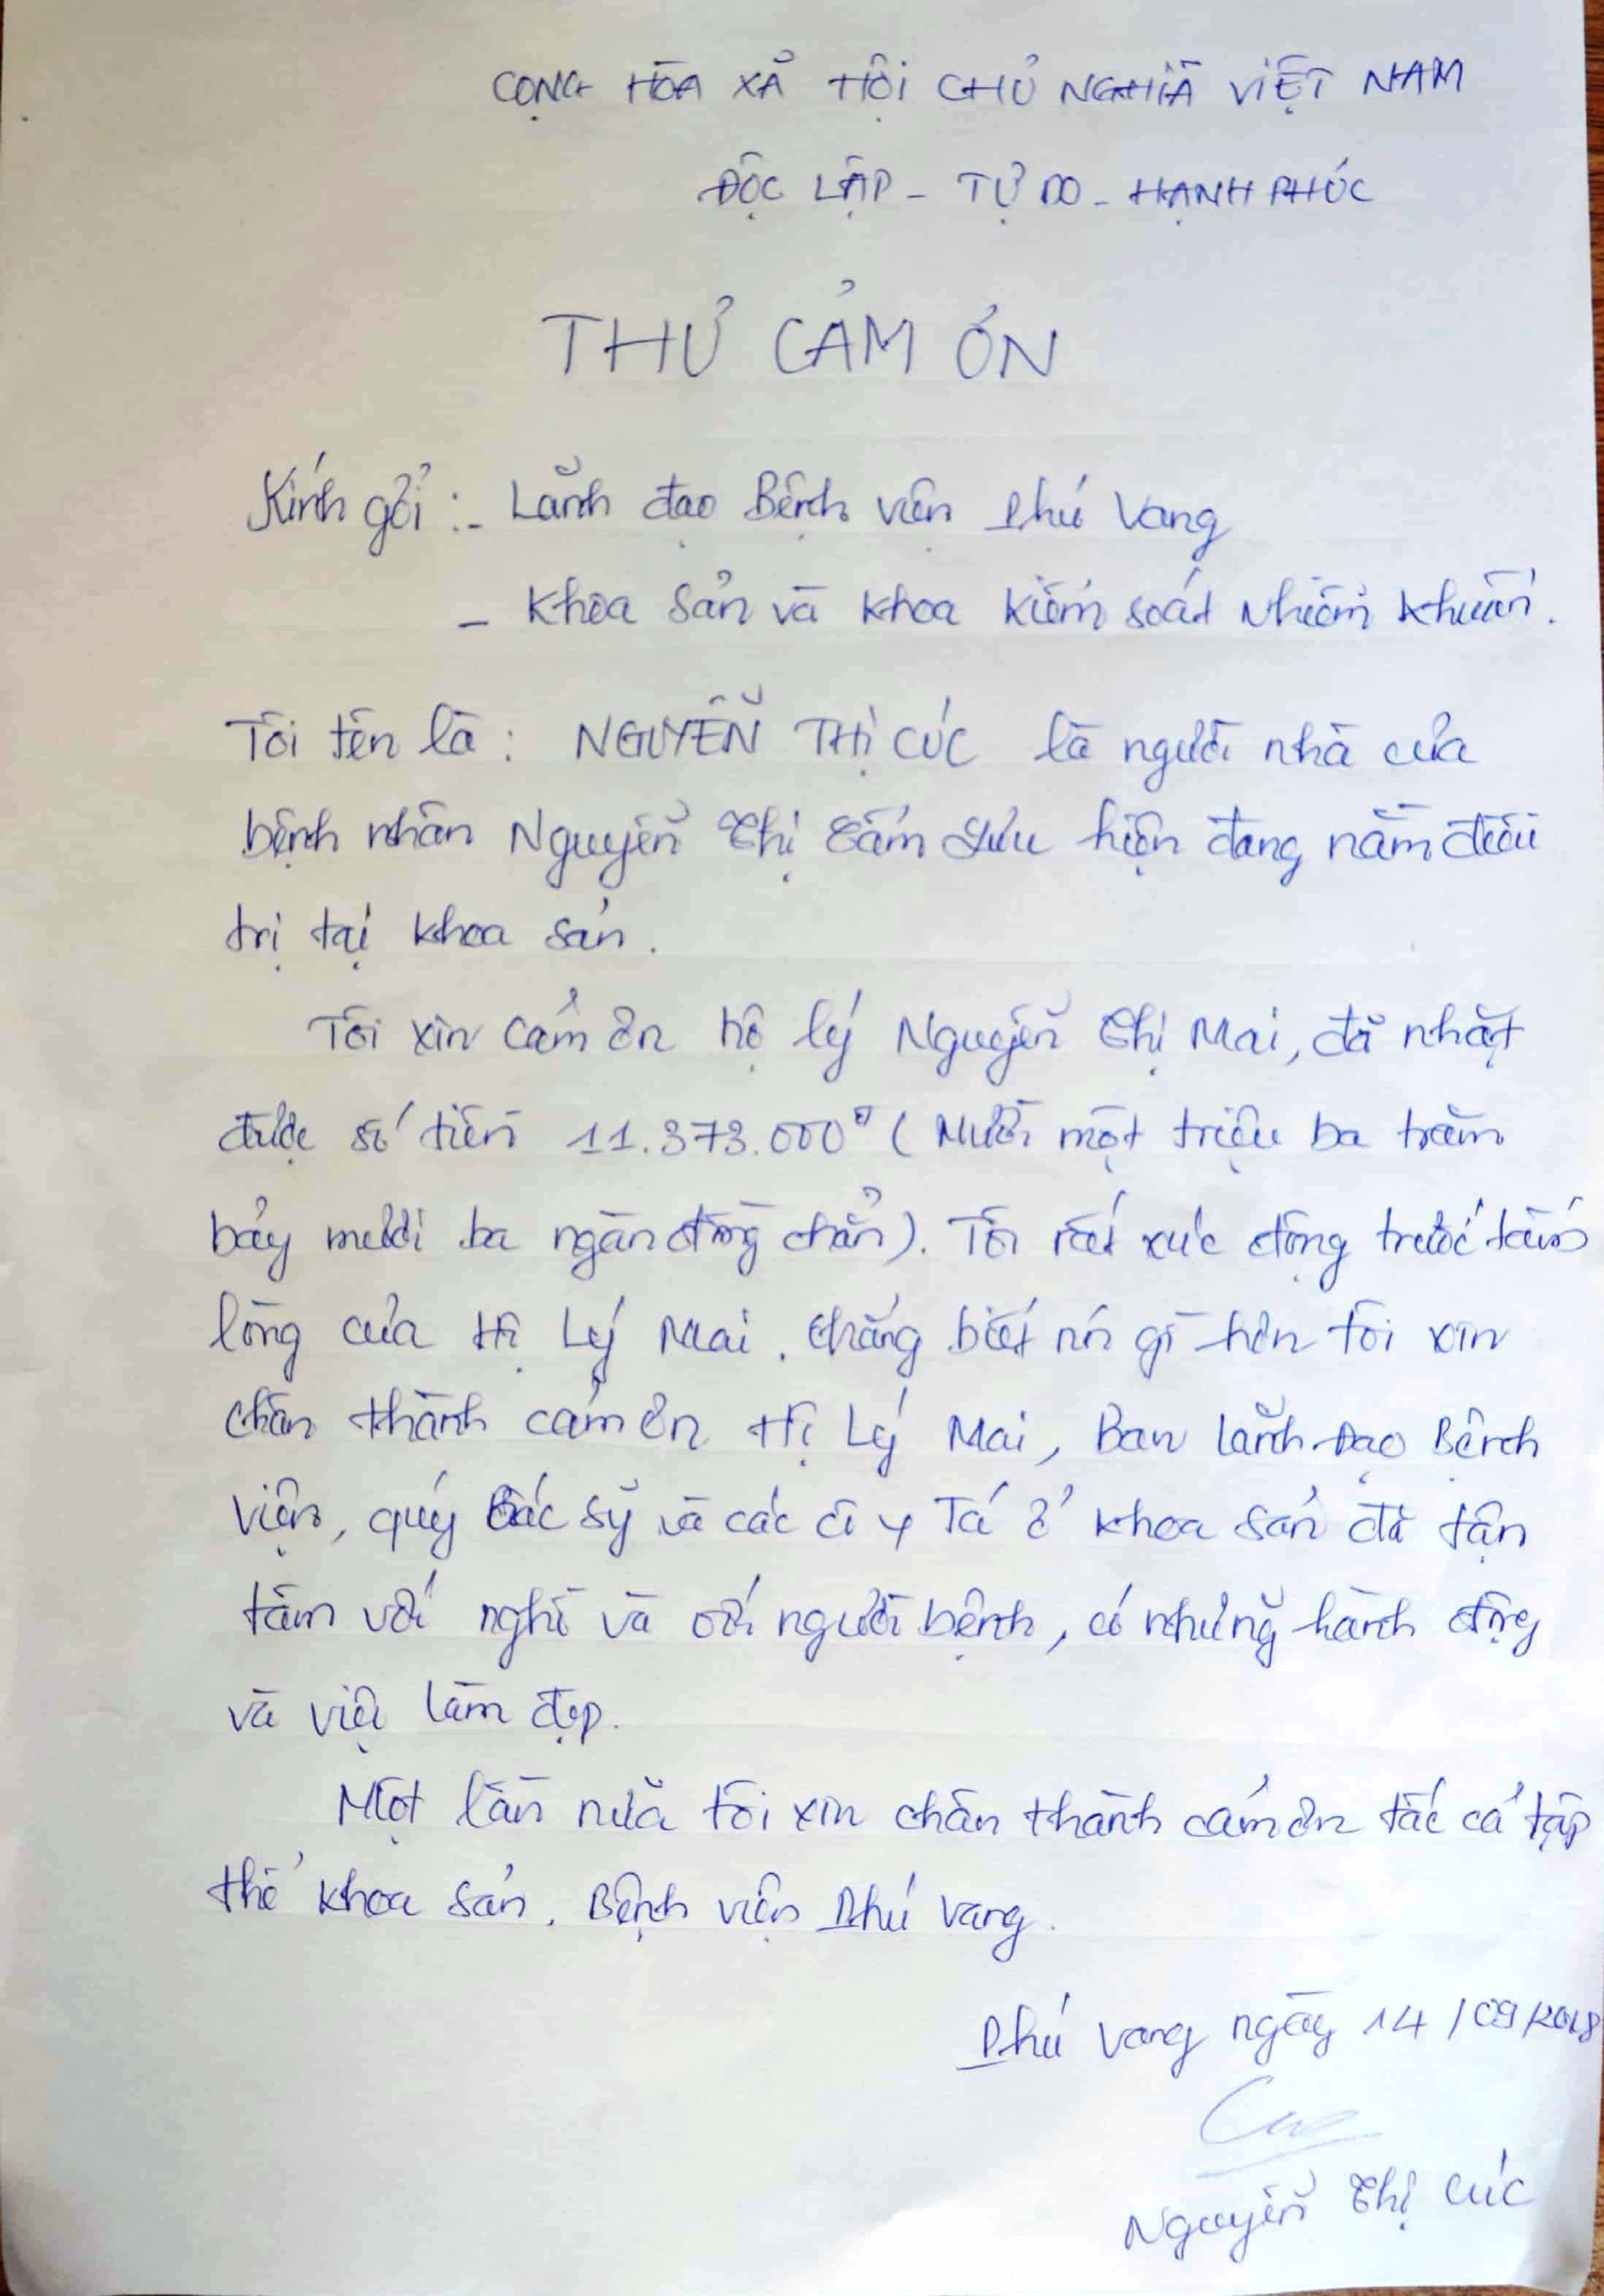 CỌNG HÒA XÃ HỘI CHỦ NGHĨA VIỆT NAM
ĐỘC LẬP - TỰ DO - HẠNH PHÚC
THƯ CẢM ƠN
Kính gởi :- Lãnh đạo Bệnh viện Phú Vang
- Khoa Sản và khoa Kiểm soát Nhiễm khuẩn.
Tôi tên là : NGUYỄN THỊ CÚC là người nhà của
bệnh nhân Nguyễn Thị Cẩm Lưu hiện đang nằm điều
trị tại khoa sản.
Tôi xin cảm ơn hộ lý Nguyễn Thị Mai, đã nhặt
được số tiền 11.373.000đ ( Mười một triệu ba trăm
bảy mươi ba ngàn đồng chẵn). Tôi rất xúc động trước tấm
lòng của Hộ Lý Mai. Chẳng biết nói gì hơn tôi xin
chân thành cảm ơn Hộ Lý Mai, Ban lãnh Đạo Bệnh
viện, quý Bác sỹ và các cô y Tá ở khoa sản đã tận
tâm với nghề và với người bệnh, có những hành động
và việc làm đẹp.
Một lần nữa tôi xin chân thành cảm ơn tấc cả tập
thể khoa sản. Bệnh viện Phú Vang.
Phú Vang ngày 14/09/2018
Cúc
Nguyễn Thị Cúc